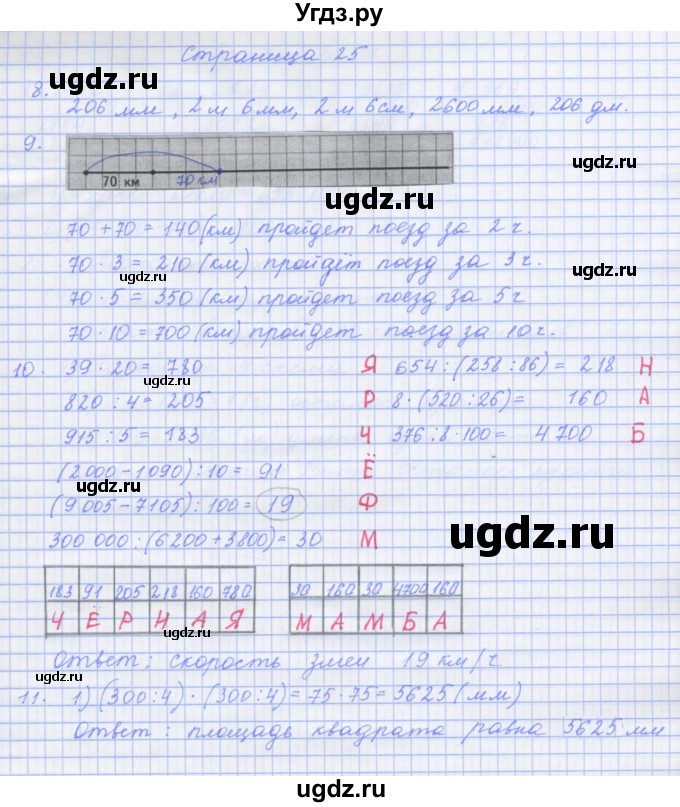 Угдз.ру
Страница 25
ugdz.ru
ugdz.ru
8.
206 мм, 2 м 6 мм, 2 м 6 см, 2600 мм, 206 дм.
9.
ugdz.ru
70 км 70 км
70 + 70 = 140 (км) пройдет поезд за 2 ч.
70 · 3 = 210 (км) пройдіт поезд за 3 ч.
ugdz.ru
ugdz.ru
70 · 5 = 350 (км) пройдет поезд за 5 ч
70 · 10 = 700 (км) пройдет поезд за 10 ч.
ugdz.ru
10. 39 · 20 = 780 Я 654 : (258 : 86) = 218 Н
ugdz.ru
820 : 4 = 205 Р 8 · (520 : 26) = 160 А
915 : 5 = 183 Ч 376 : 8 · 100 = 4 700 Б
(2 000 - 1090) : 10 = 91 Ё
ugdz.ru
(9 005 - 7105) : 100 = 19 Ф
300 000 : (6200 + 3800) = 30 М
ugdz.ru
183 91 205 218 160 780 30 160 30 4700 160
Ч Ё Р Н А Я М А М Б А
ugdz.ru
Ответ : скорость змеи 19 км/ч
ugdz.ru
ugdz.ru
11. 1) (300 : 4) · (300 : 4) = 75 · 75 = 5625 (мм)
Ответ : площадь квадрата равна 5625 мм
ugdz.ru